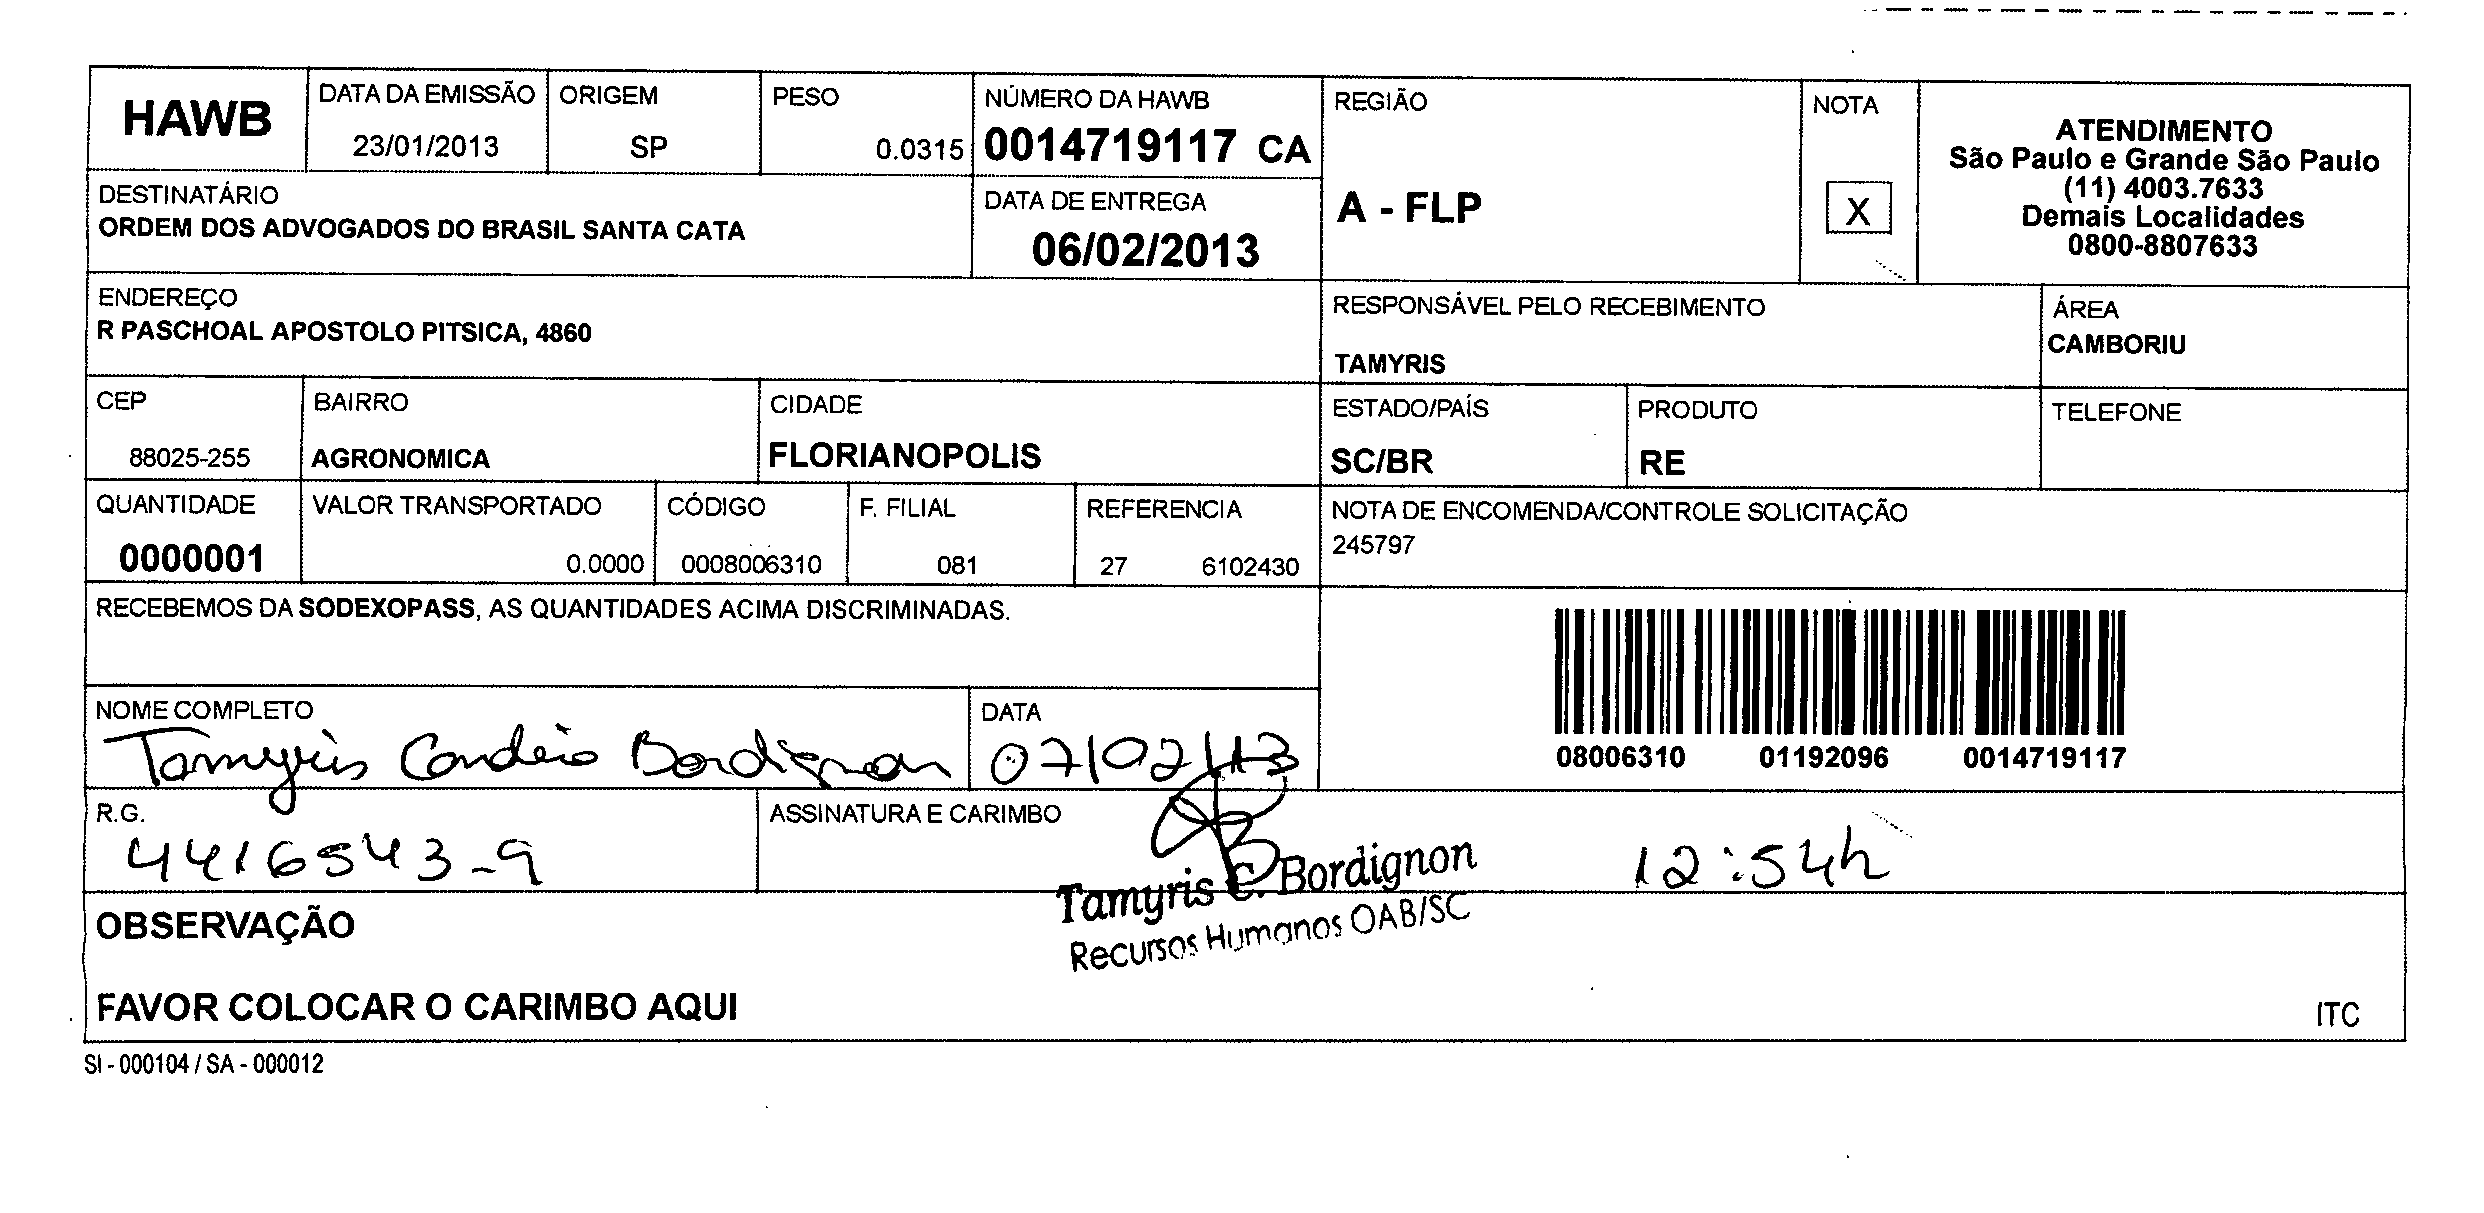 HAWB
DATA DA EMISSÃO
23/01/2013
ORIGEM
SP
PESO
0.0315
NÚMERO DA HAWB
0014719117 CA
REGIÃO
A - FLP
NOTA
X
ATENDIMENTO
São Paulo e Grande São Paulo
(11) 4003.7633
Demais Localidades
0800-8807633
DESTINATÁRIO
ORDEM DOS ADVOGADOS DO BRASIL SANTA CATA
DATA DE ENTREGA
06/02/2013
ENDEREÇO
R PASCHOAL APOSTOLO PITSICA, 4860
RESPONSÁVEL PELO RECEBIMENTO
TAMYRIS
ÁREA
CAMBORIU
CEP
88025-255
BAIRRO
AGRONOMICA
CIDADE
FLORIANOPOLIS
ESTADO/PAÍS
SC/BR
PRODUTO
RE
TELEFONE
QUANTIDADE
0000001
VALOR TRANSPORTADO
0.0000
CÓDIGO
0008006310
F. FILIAL
081
REFERENCIA
27 6102430
NOTA DE ENCOMENDA/CONTROLE SOLICITAÇÃO
245797
RECEBEMOS DA SODEXOPASS, AS QUANTIDADES ACIMA DISCRIMINADAS.
08006310 01192096 0014719117
NOME COMPLETO
Tamyris Bordignon
DATA
07/02/13
R.G.
4416543-9
ASSINATURA E CARIMBO
Tamyris C. Bordignon
Recursos Humanos OAB/SC
12:54h
OBSERVAÇÃO
FAVOR COLOCAR O CARIMBO AQUI
ITC
SI - 000104 / SA - 000012